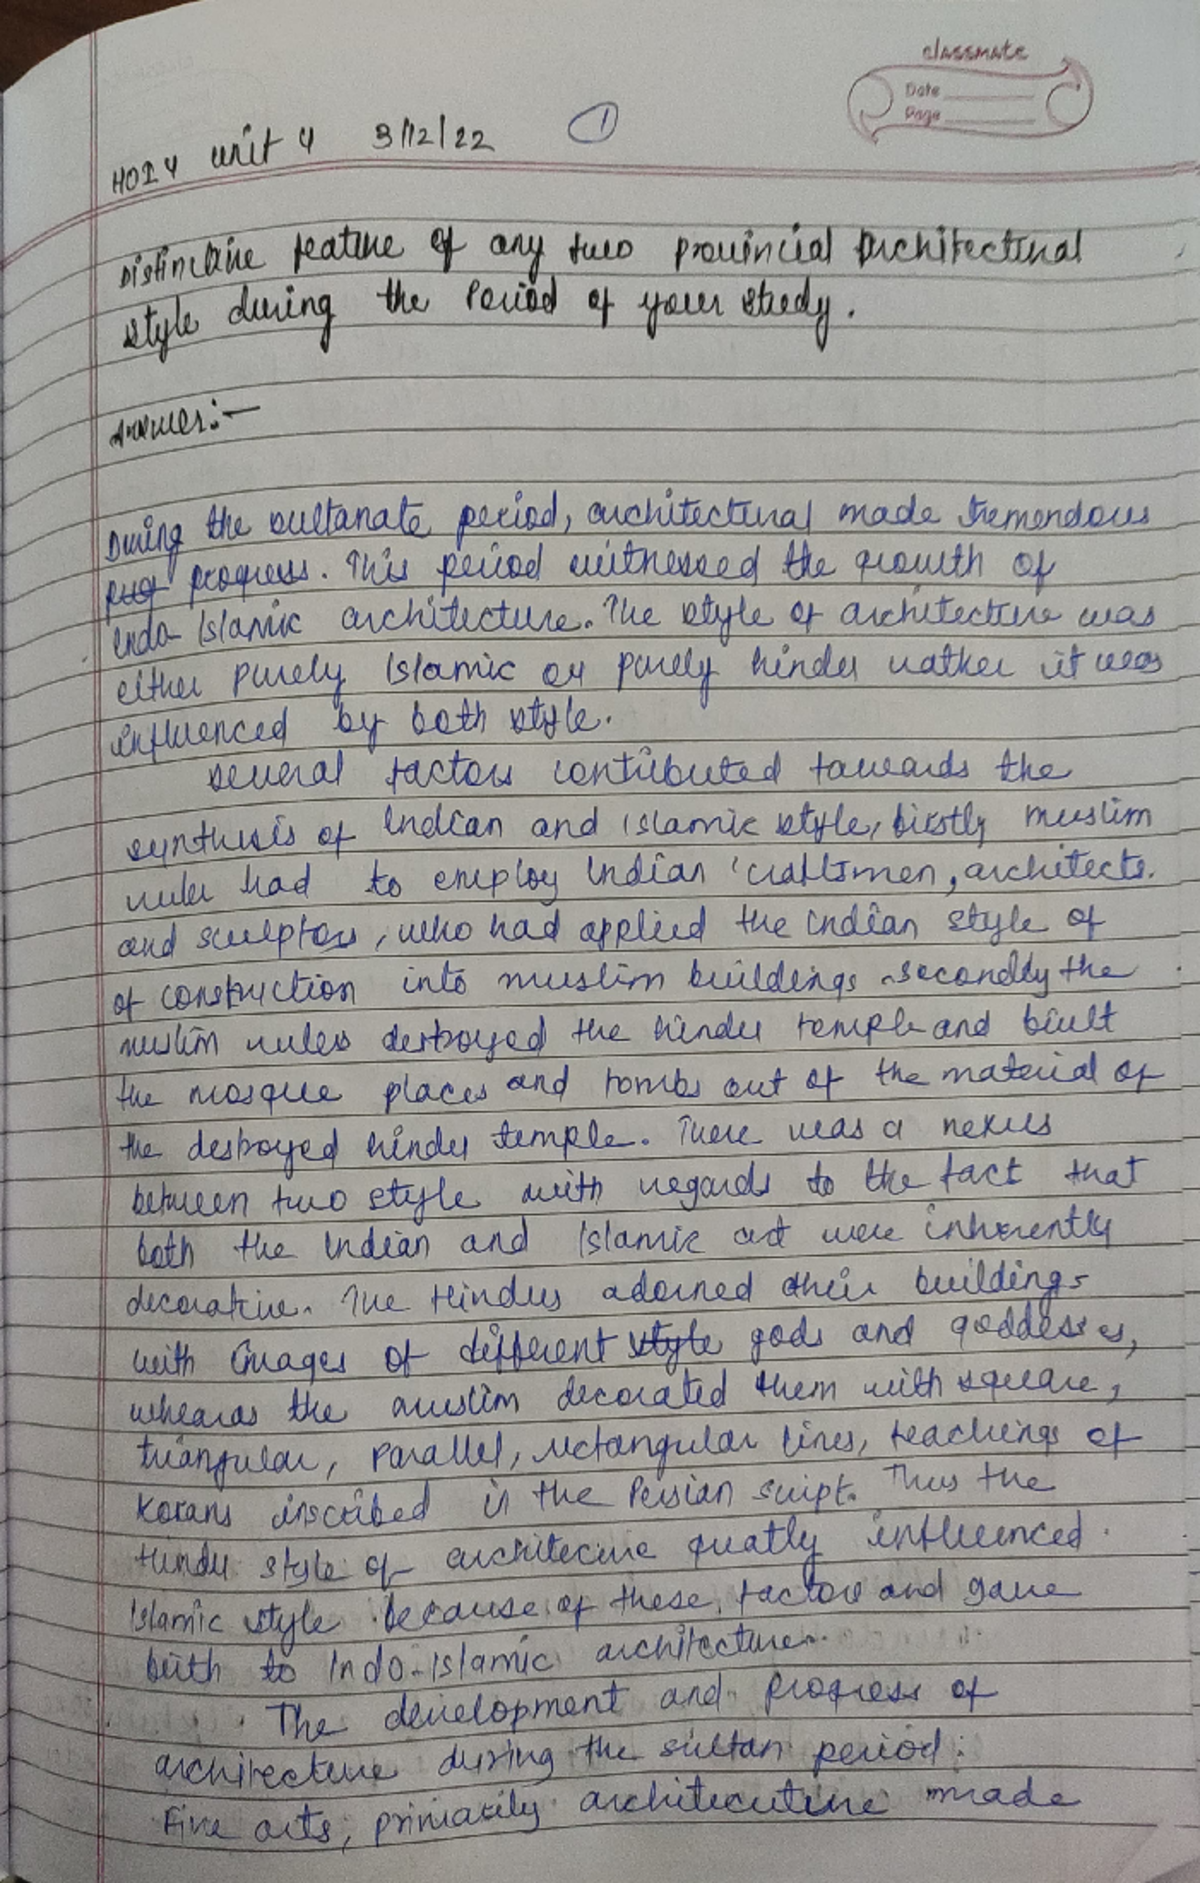 classmate
Date
Page
HOI 4 unit 4 3/12/22 1
Distinctive feature of any two provincial Architectural
style during the Period of your study.
Answer:-
During the sultanate period, architectural made tremendous
progress. This period witnessed the growth of
Indo-Islamic architecture. The style of architecture was
either purely Islamic or purely hindu rather it was
influenced by both style.
Several factors contributed towards the
synthesis of Indian and Islamic style, firstly muslim
ruler had to employ Indian craftsmen, architects.
and sculptors, who had applied the Indian style of
of construction into muslim buildings. secondly the
muslim rulers destroyed the hindu temple and built
the mosque places and tombs out of the material of
the destroyed hindu temple. There was a nexus
between two style with regards to the fact that
both the Indian and Islamic art were inherently
decorative. The Hindus adorned their buildings
with images of different style gods and goddesses,
wheares the muslim decorated them with square,
triangular, parallel, rectangular lines, teachings of
Korans inscribed in the Persian script. Thus the
Hindu style of architecure greatly influenced
Islamic style because of these factors and gave
birth to Indo-Islamic architecture.
The development and progress of
architecture during the sultan period:
Fine arts, primarily architecuture made